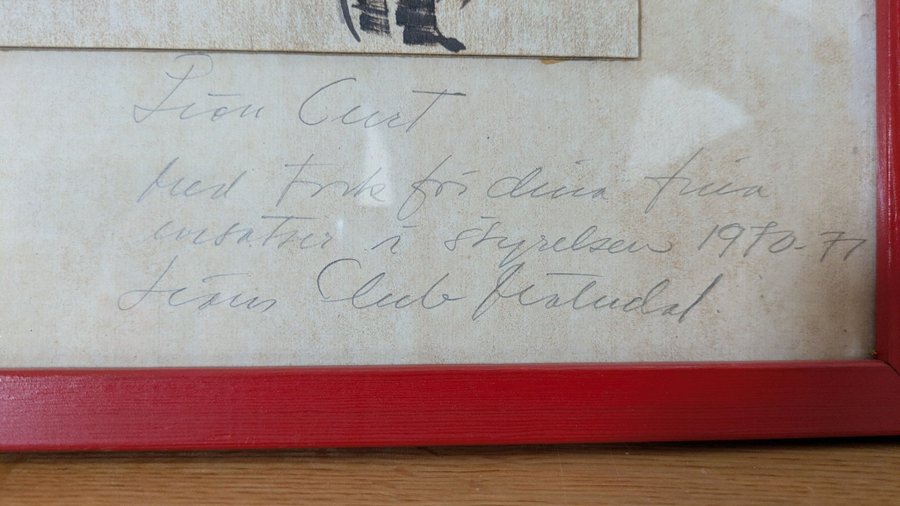 Lion Curt
med tack för dina fina
insatser i styrelsen 1970-71
Lions Club